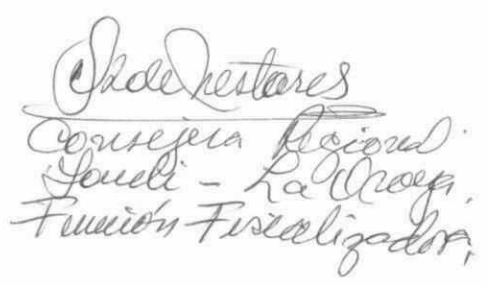 Consejera Regional.
Yauli - La Oroya,
Función Fiscalizadora,